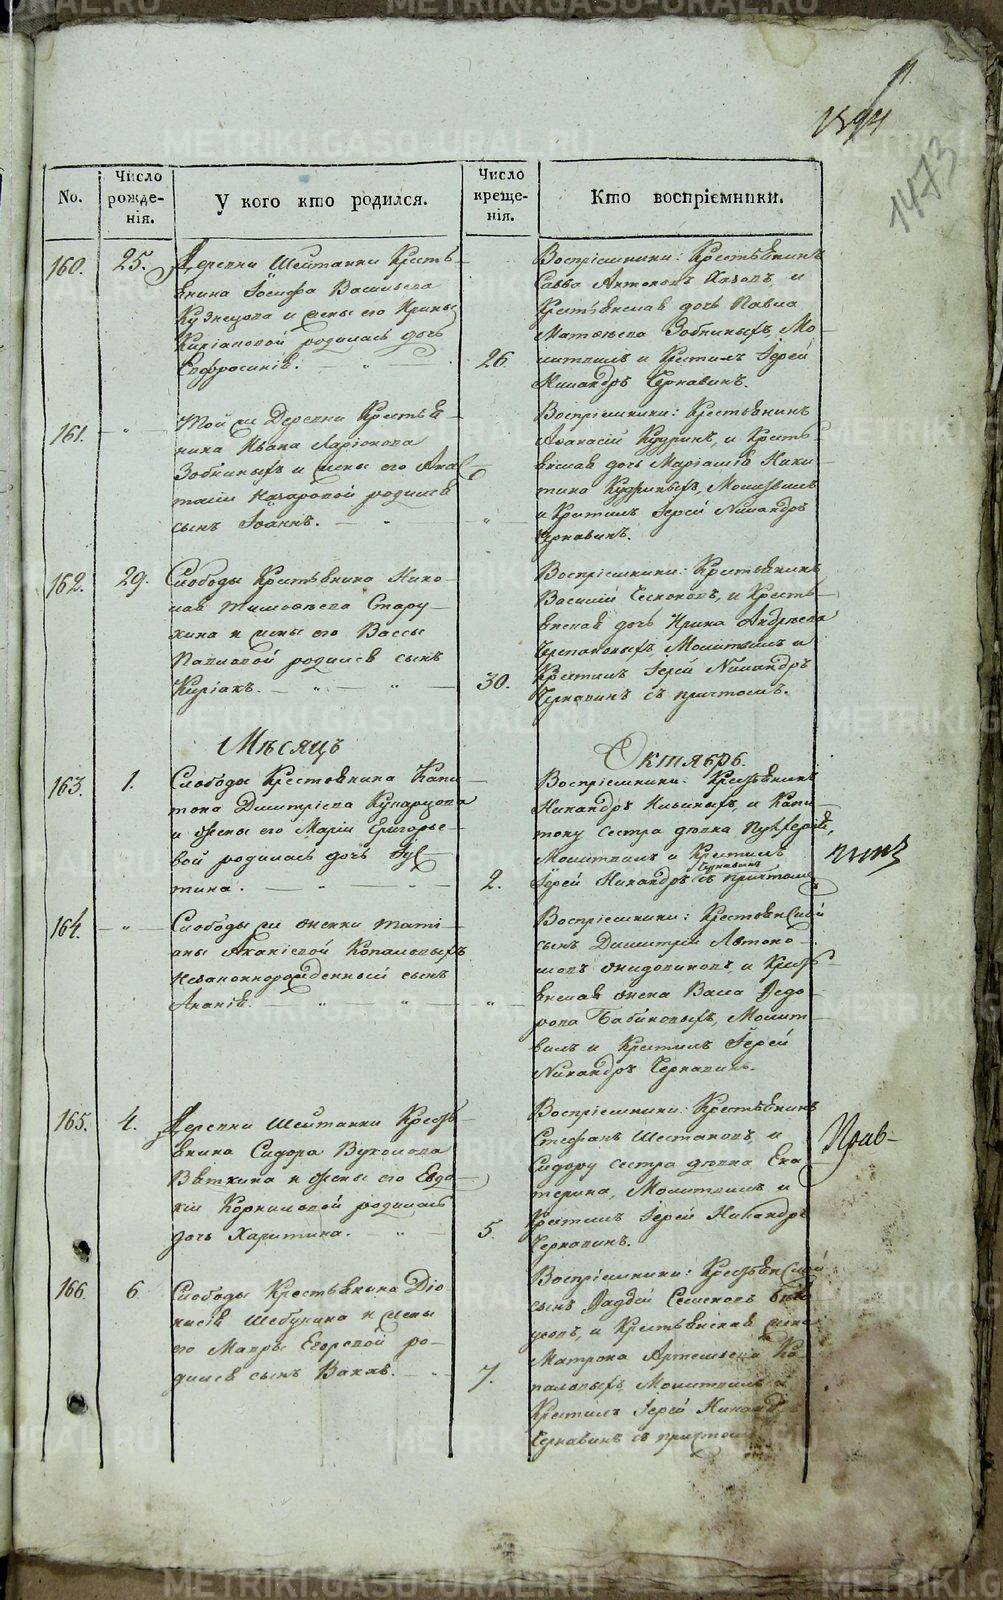 1594
1473
No.
Число рожде-нія.
У кого кто родился.
Число креще-нія.
Кто воспріемники.
160.
25.
Деревни Шейтанки Кресть-
янина Іосифа Васильева
Кузнецова и жены его Ирины
Киріаковой родилась дочь
Евфросинія.
26.
Воспріемники: Крестьянинъ
Савва Антоновъ и
Крестьянская дочь Павла
Матвѣева Зобниныхъ, Мо-
литвилъ и Крестилъ Іерей
Никандръ Чернавинъ.
161.
Той же Деревни Крестья-
нина Ивана Ларіонова
Зобниныхъ и жены его Анас-
тасіи Назаровой родился
сынъ Іоаннъ.
Воспріемники: Крестьянинъ
Аѳанасій и Кресть-
янская дочь Маріамія Ники-
тина Молитвилъ
и Крестилъ Іерей Никандръ
Чернавинъ.
162.
29.
Слободы Крестьянина Нико-
лая Тимоѳеева Стару-
хина и жены его Вассы
Павловой родился сынъ
Киріакъ.
30.
Воспріемники: Крестьянинъ
Василій и Кресть-
янская дочь Ирина Андреева
Черепановыхъ, Молитвилъ и
Крестилъ Іерей Никандръ
Чернавинъ съ причтомъ.
Мѣсяцъ
Октябрь.
163.
1.
Слободы Крестьянина Капи-
тона Димитріева
и жены его Маріи Григорье-
вой родилась дочь Іус-
тина.
2.
Воспріемники: Крестьянинъ
Никандръ Ильиныхъ, и Капи-
тону сестра дѣвка Пулхерія,
Молитвилъ и Крестилъ
Іерей Никандръ Чернавинъ съ причтомъ
чинъ
164.
Слободы же жонки Тать-
яны Ананіевой Копаловыхъ
незаконнорожденный сынъ
Ананія.
Воспріемники: Крестьянскій
сынъ Димитрій Автоно-
мовъ и Кресть-
янская жонка Васса Ѳедо-
рова Бабиновыхъ, Молит-
вилъ и Крестилъ Іерей
Никандръ Чернавинъ.
165.
4.
Деревни Шейтанки Кресть-
янина Сидора Вуколова
Вяткина и жены его Евдо-
кіи Корниловой родилась
дочь Харитина.
5.
Воспріемники: Крестьянинъ
Стефанъ Шестаковъ, и
Сидору сестра дѣвка Ека-
терина, Молитвилъ и
Крестилъ Іерей Никандръ
Чернавинъ.
Прав-
166.
6
Слободы Крестьянина Діо-
нисія Шебунина и жены
его Мавры Егоровой ро-
дился сынъ Вакхъ.
7.
Воспріемники: Крестьянскій
сынъ Ѳаддей Семеновъ
и Крестьянская жена
Матрона Артемьева Ко-
паловыхъ, Молитвилъ и
Крестилъ Іерей Никандръ
Чернавинъ съ причтомъ
METRIKI.GASO-URAL.RU